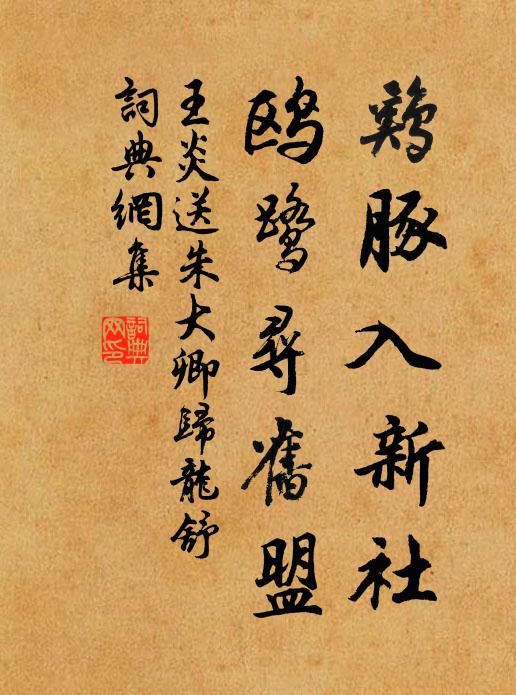 鷄豚入新社
鷗鷺尋舊盟
王炎送朱大卿歸龍舒
詞典網集
詞典
网印